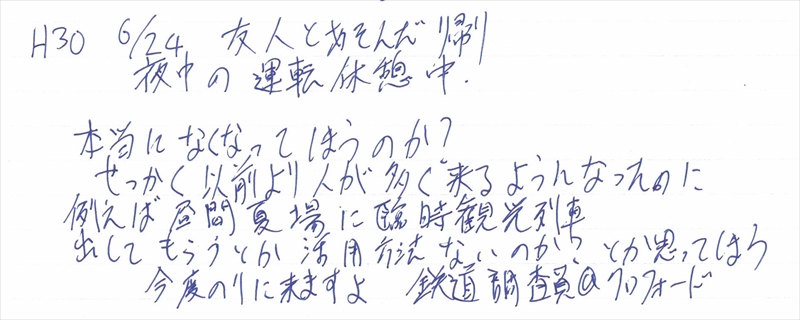 H30 6/24 友人とあそんだ帰り
夜中の運転休憩中.
本当になくなってしまうのか?
せっかく以前より人が多く来るようになったのに
例えば昼間夏場に臨時観光列車
出してもらうとか活用方法ないのか?とか思ってしまう
今度のりに来ますよ 鉄道調査員@クロフォード